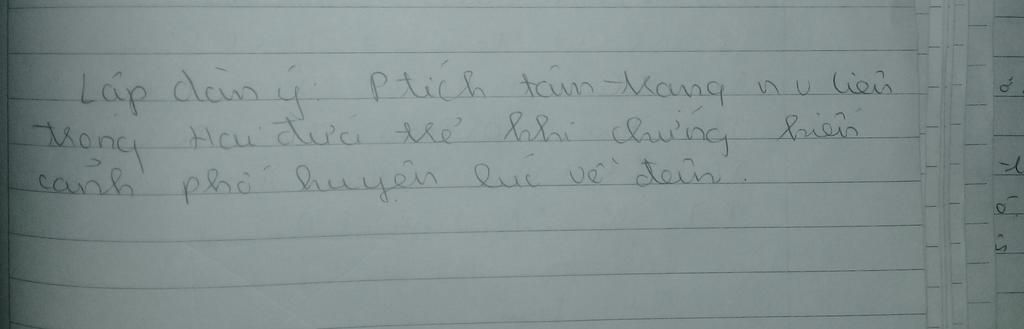 Lập dàn ý: Ptích tâm trạng n v liên
trong Hai đứa trẻ khi chứng kiến
cảnh phố huyện lúc về đêm.